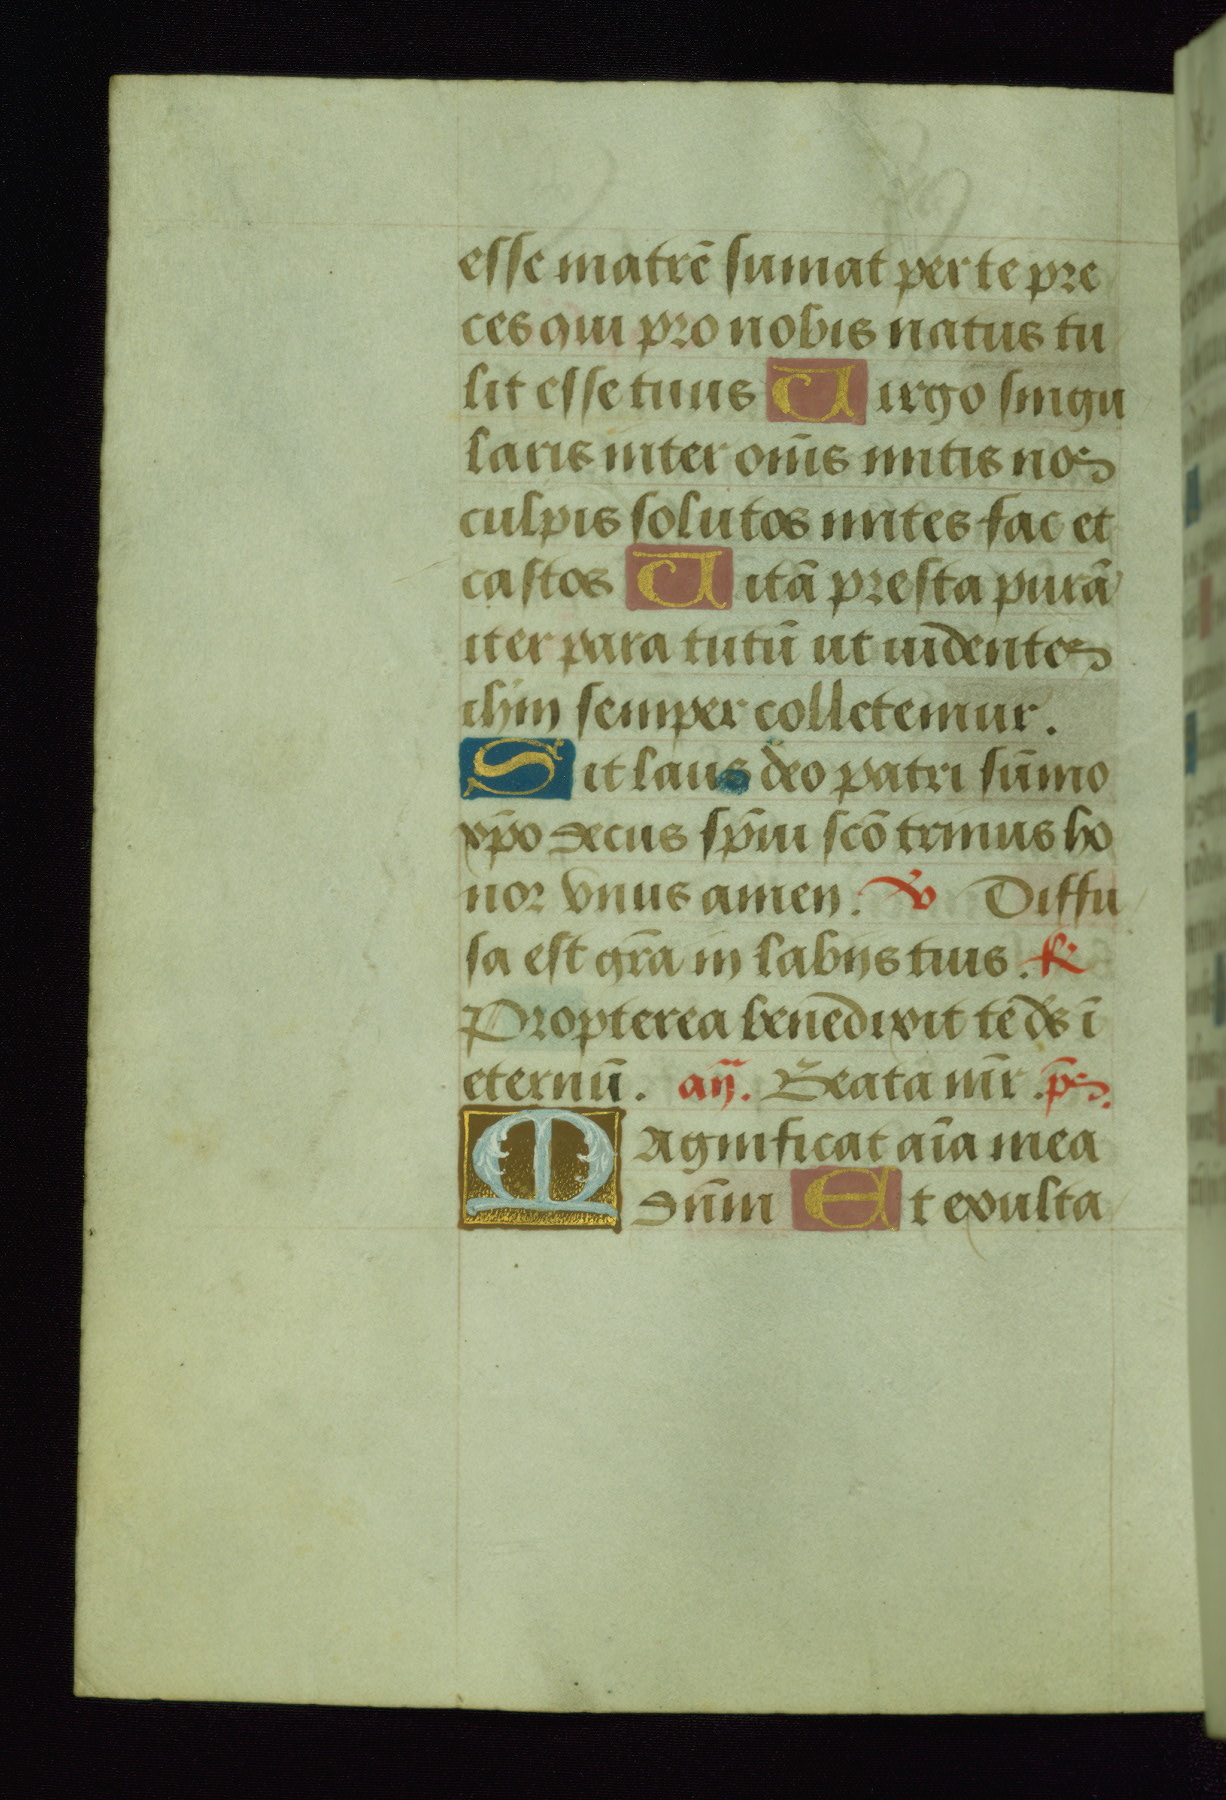 esse matrē sumat per te pre
ces qui pro nobis natus tu
lit esse tuus Uirgo singu
laris inter om̄is mitis nos
culpis solutos mites fac et
castos Uitā presta purā
iter para tutū ut uidentes
ihm semper colletemur.
Sit laus deo patri sūmo
xp̄o decus sp̄iu scō trinus ho
nor vnus amen. ℣ Diffu
sa est gr̄a in labijs tuis. ℟
Propterea benedixit te ds̄ ī
eternū. an̄. Beata mr̄. ps̄.
Magnificat aīa mea
dn̄m Et exulta